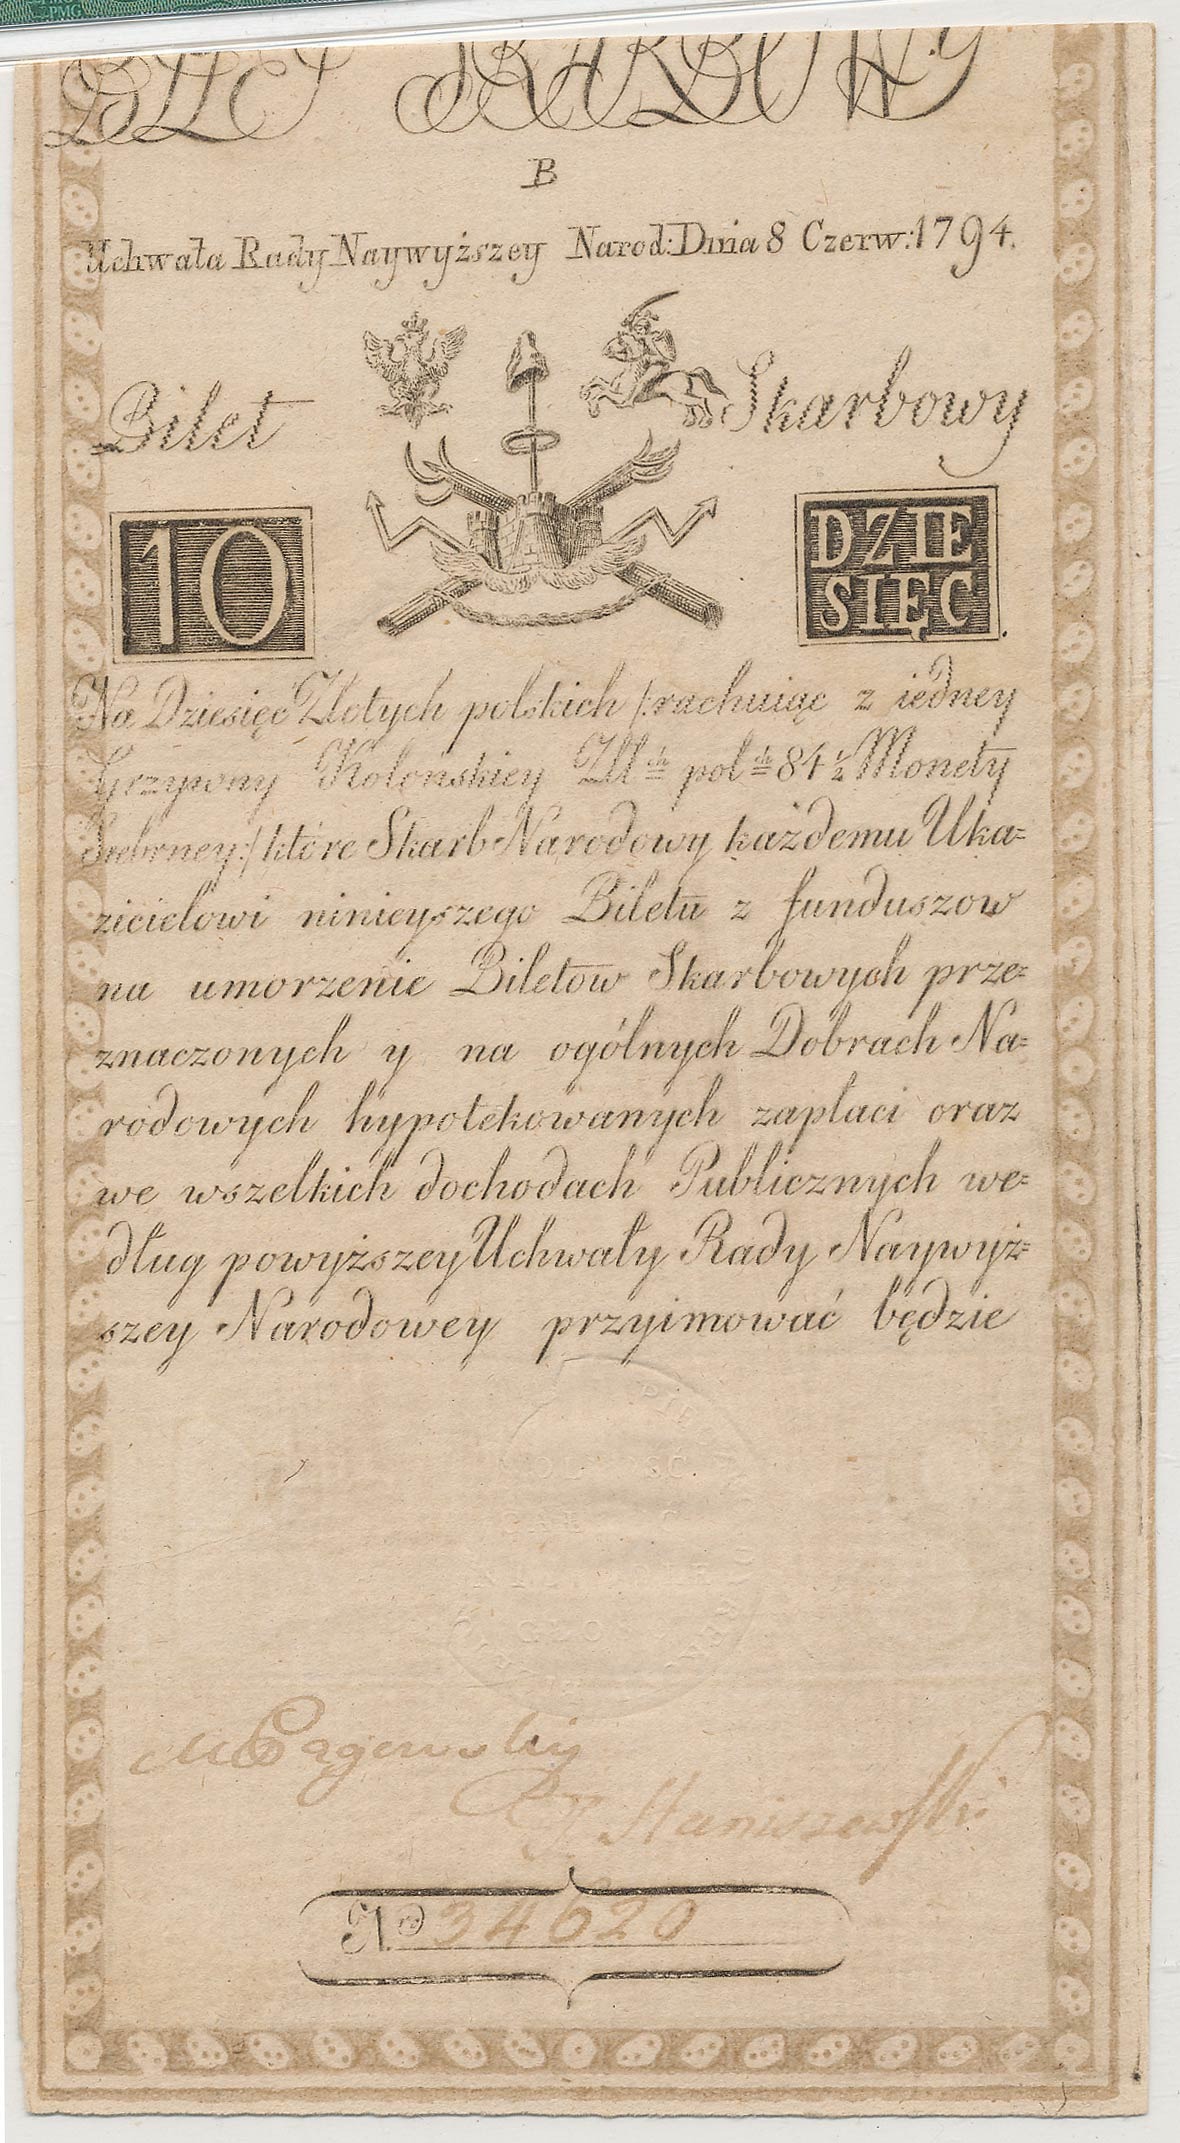 PMG
BILET SKARBOWY
B
Uchwała Rady Naywyższey Narod: Dnia 8 Czerw: 1794.
Bilet Skarbowy
10
DZIE
SIĘC
Na Dziesięć Złotych polskich /:rachuiąc z iedney
Grzywny Kolonskiey Zł ch pol ch 84 1/2 Monety
Srebrney:/ które Skarb Narodowy każdemu Uka=
zicielowi ninieyszego Biletu z funduszow
na umorzenie Biletow Skarbowych prze=
znaczonych y na ogólnych Dobrach Na=
rodowych hypotekowanych zapłaci oraz
we wszelkich dochodach Publicznych we=
dług powyższey Uchwały Rady Naywyż=
szey Narodowey przyimować będzie
J Staniszewski
N.ro 34620